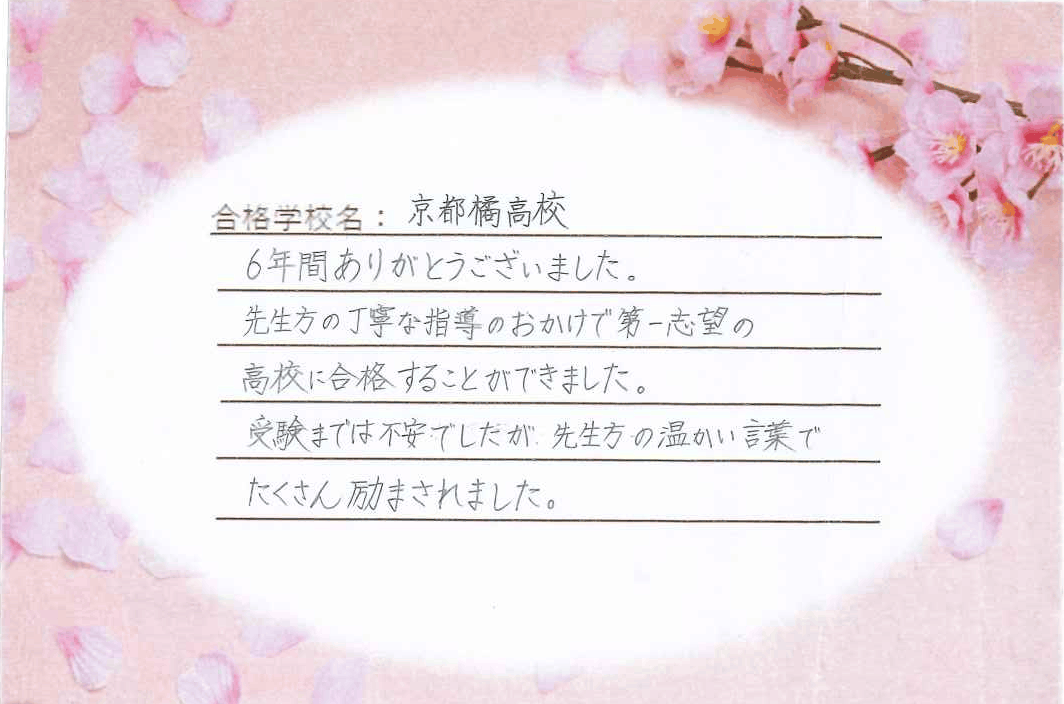 合格学校名： 京都橘高校
6年間ありがとうございました。
先生方の丁寧な指導のおかげで第一志望の
高校に合格することができました。
受験までは不安でしたが、先生方の温かい言葉で
たくさん励まされました。